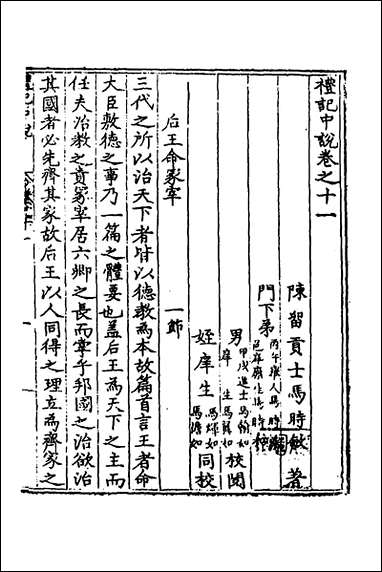 禮記中說卷之十一
陳留貢士馬時敏著
門下弟
丙午舉人馬時
邑庠廩生馬時
男
甲戌進士馬翰如
庠生馬
校閱
姪庠生
馬如
馬如
同校
后王命冢宰 一節
三代之所以治天下者皆以德教為本故篇首言王者命
大臣敷德之事乃一篇之體要也蓋后王為天下之主而
任夫治教之責冢宰居六卿之長而掌乎邦國之治欲治
其國者必先齊其家故后王以人同得之理立為齊家之